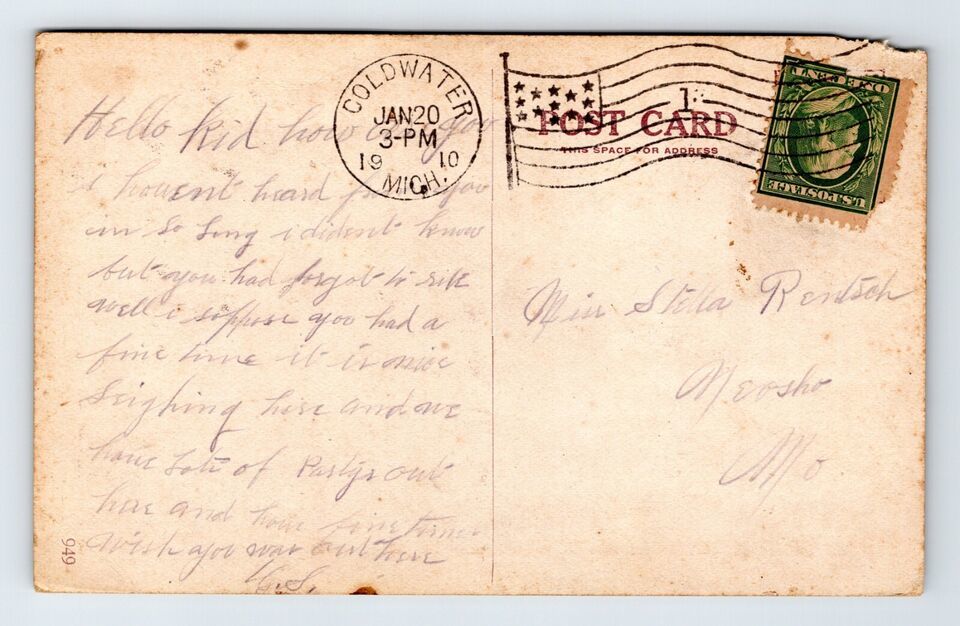 Hello kid how are you
i havent heard from you
in so long i dident know
but you had forgot to rite
well i suppose you had a
fine time it is nice
Seighing here and we
have lots of Partys out
here and have fine times
Wish you was out here
COLDWATER
JAN 20
3-PM
1910
MICH.
1
POST CARD
THIS SPACE FOR ADDRESS
ONE CENT
U.S. POSTAGE
Miss Stella Rentsch
Neosho
Mo
949